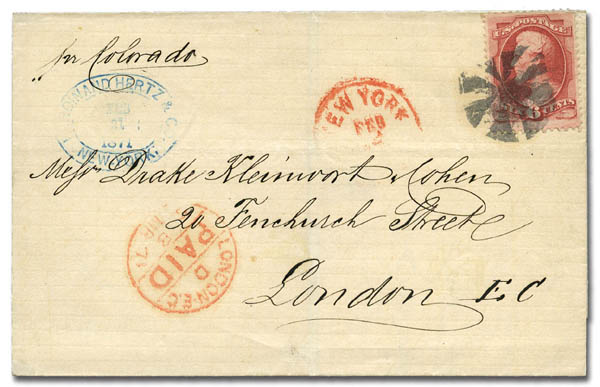 pr Colorado
HERTZ & C
FEB
1871
NEW YORK.
NEW YORK
FEB
U.S. POSTAGE
6
Messrs Drake Kleinwort & Cohen
20 Fenchurch Street
London E C
LONDON E.C
D
PAID